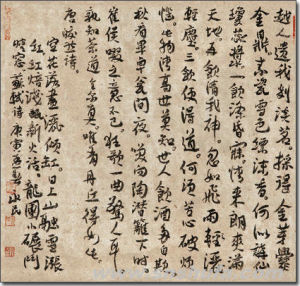 越人遺我剡溪茗採得金芽爨
金鼎素瓷雪色縹沫香何似諸仙
瓊蕊漿一飲滌昏寐情來朗爽滿
天地再飲清我神忽如飛雨
輕塵三飲便得道何須苦心破煩
惱此物清高世莫知世人飲酒多自欺
愁看畢卓甕間夜笑向陶潛籬下時
崔侯啜之意不已狂歌一曲驚人耳
孰知茶道全爾真唯有丹丘得如此
唐皎然詩
空花落盡酒傾缸日上山融雪漲
江紅焙淺甌新火活龍團小碾鬥
晴窗蘇軾詩庚寅